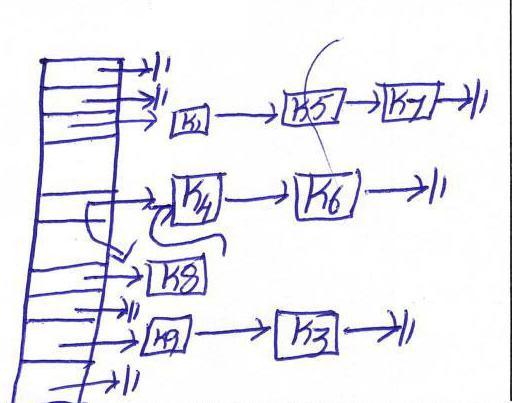 K1 K5 K7
K4 K6
K8
K9 K3